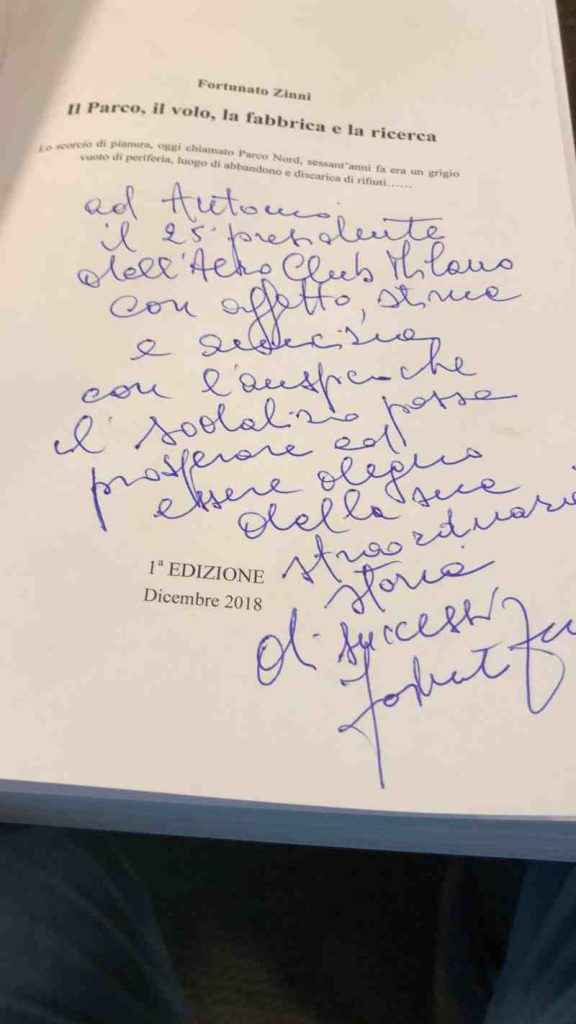 Fortunato Zinni
Il Parco, il volo, la fabbrica e la ricerca
Lo scorcio di pianura, oggi chiamato Parco Nord, sessant'anni fa era un grigio
vuoto di periferia, luogo di abbandono e discarica di rifiuti……
ad Antonio
il 25° presidente
dell'Aero Club Milano
con affetto, stima
e amicizia
con l'auspicio che
il sodalizio possa
prosperare ed
essere degno
della sua
straordinaria
storia
di successi
1ª EDIZIONE
Dicembre 2018